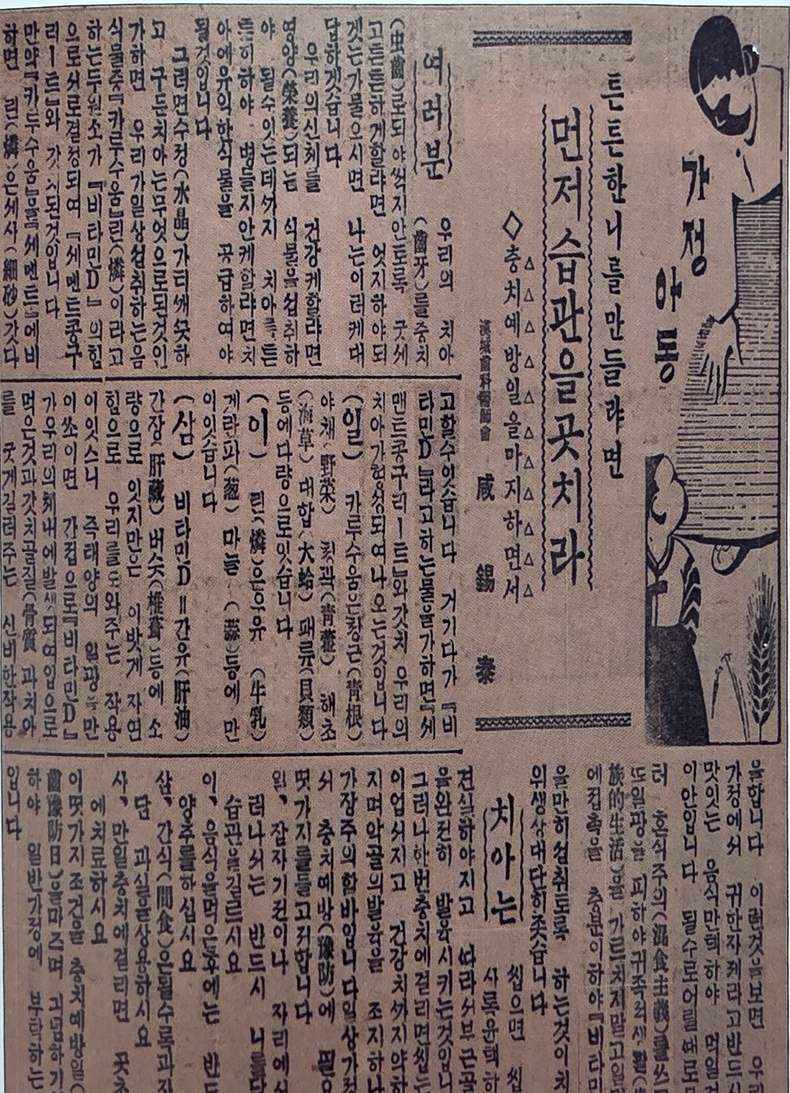 가정
아동
튼튼한 니를 만들랴면
먼저 습관을 곳치라
◇충치예방일을 마지하면서
漢城齒科醫師會 咸錫泰
여러분 우리의 치아
(齒牙)를충치
(虫齒)로되야썩지안토록 굿세
고튼튼하게할랴면 엇지하야되
겟는가물으시면 나는이러케대
답하겟습니다
우리의신체를 건강케할랴면
영양(榮養)되는 식물을섭취하
야 될수잇는데까지 치아를튼
튼히하야 병들지안케할랴면치
아에유익한식물을 공급하여야
될것입니다
그러면수정(水晶)가티깨끗하
고 구든치아는무엇으로된것인
가하면 우리가일상섭취하는음
식물중『카루수움』린(燐)이라고
하는두원소가『비타민D』의힘
으로서로결정되여『쎄멘트콩구
리ー트』와 갓치된것입니다
만약『카두수움』을『쎄멘트』에비
하면 린(燐)은세사(細砂)갓다
고할수잇습니다 거기다가『비
타민D』라고하는물을가하면『쎄
맨트콩구리ー트』와갓치 우리의
치아가형성되여나오는것입니다
(일) 카루수움은청근(青根)
야채(野菜) 해초
(海草) 대합(大蛤) 패류(貝類)
등에다량으로잇습니다
(이) 린(燐)은우유 (牛乳)
게란파(葱) 마늘 (蒜)등에만
이잇습니다
(삼) 비타민D=간유(肝油)
간장(肝臟) 버슷(椎茸)등에 소
량으로 잇지만은 이밧게 자연
힘으로 우리를도와주는 작용
이잇스니 즉태양의 일광을만
이쏘이면 간접으로『비타민D』
가우리의체내에발생되여입으로
먹은것과갓치골질(骨質)과치아
를 굿게길러주는 신비한작용
을합니다 이런것을보면 우
가정에서 귀한자케라고반드시
맛잇는 음식만택하야 먹일
이안입니다 될수로어릴때로
터 혼식주의(混食主義)를쓰
또일광을 피하야귀족적생활(
族的生活)을 가르치지말고일
에접촉을 충분이하야『비타민
을만히섭취토록 하는것이치
위생상대단히좃습니다
치아는 씹으면 씹
사록윤택하
견실하야지고 따라서부근골
을완전히 발육시키는것입니
그러나한번충치에걸리면씹는
이업서지고 건강치까지약하
지며악골의발육을 조지하나
가장주의할바입니다일상가정
서 충치예방(豫防)에 필요
멋가지를들고저합니다
일、잠자기전이나 자리에서
러나서는 반드시 니를닥
습관을길르시요
이、음식을먹은후에는 반드
양추를하십시요
삼、간식(間食)은될수록과자
단 과실을상용하시요
사、만일충치에걸리면 곳초
에치료하시요
이몃가지조건을 충치예방일(
齒豫防日)을마즈며
하야 일반가정에 부탁하는
입니다